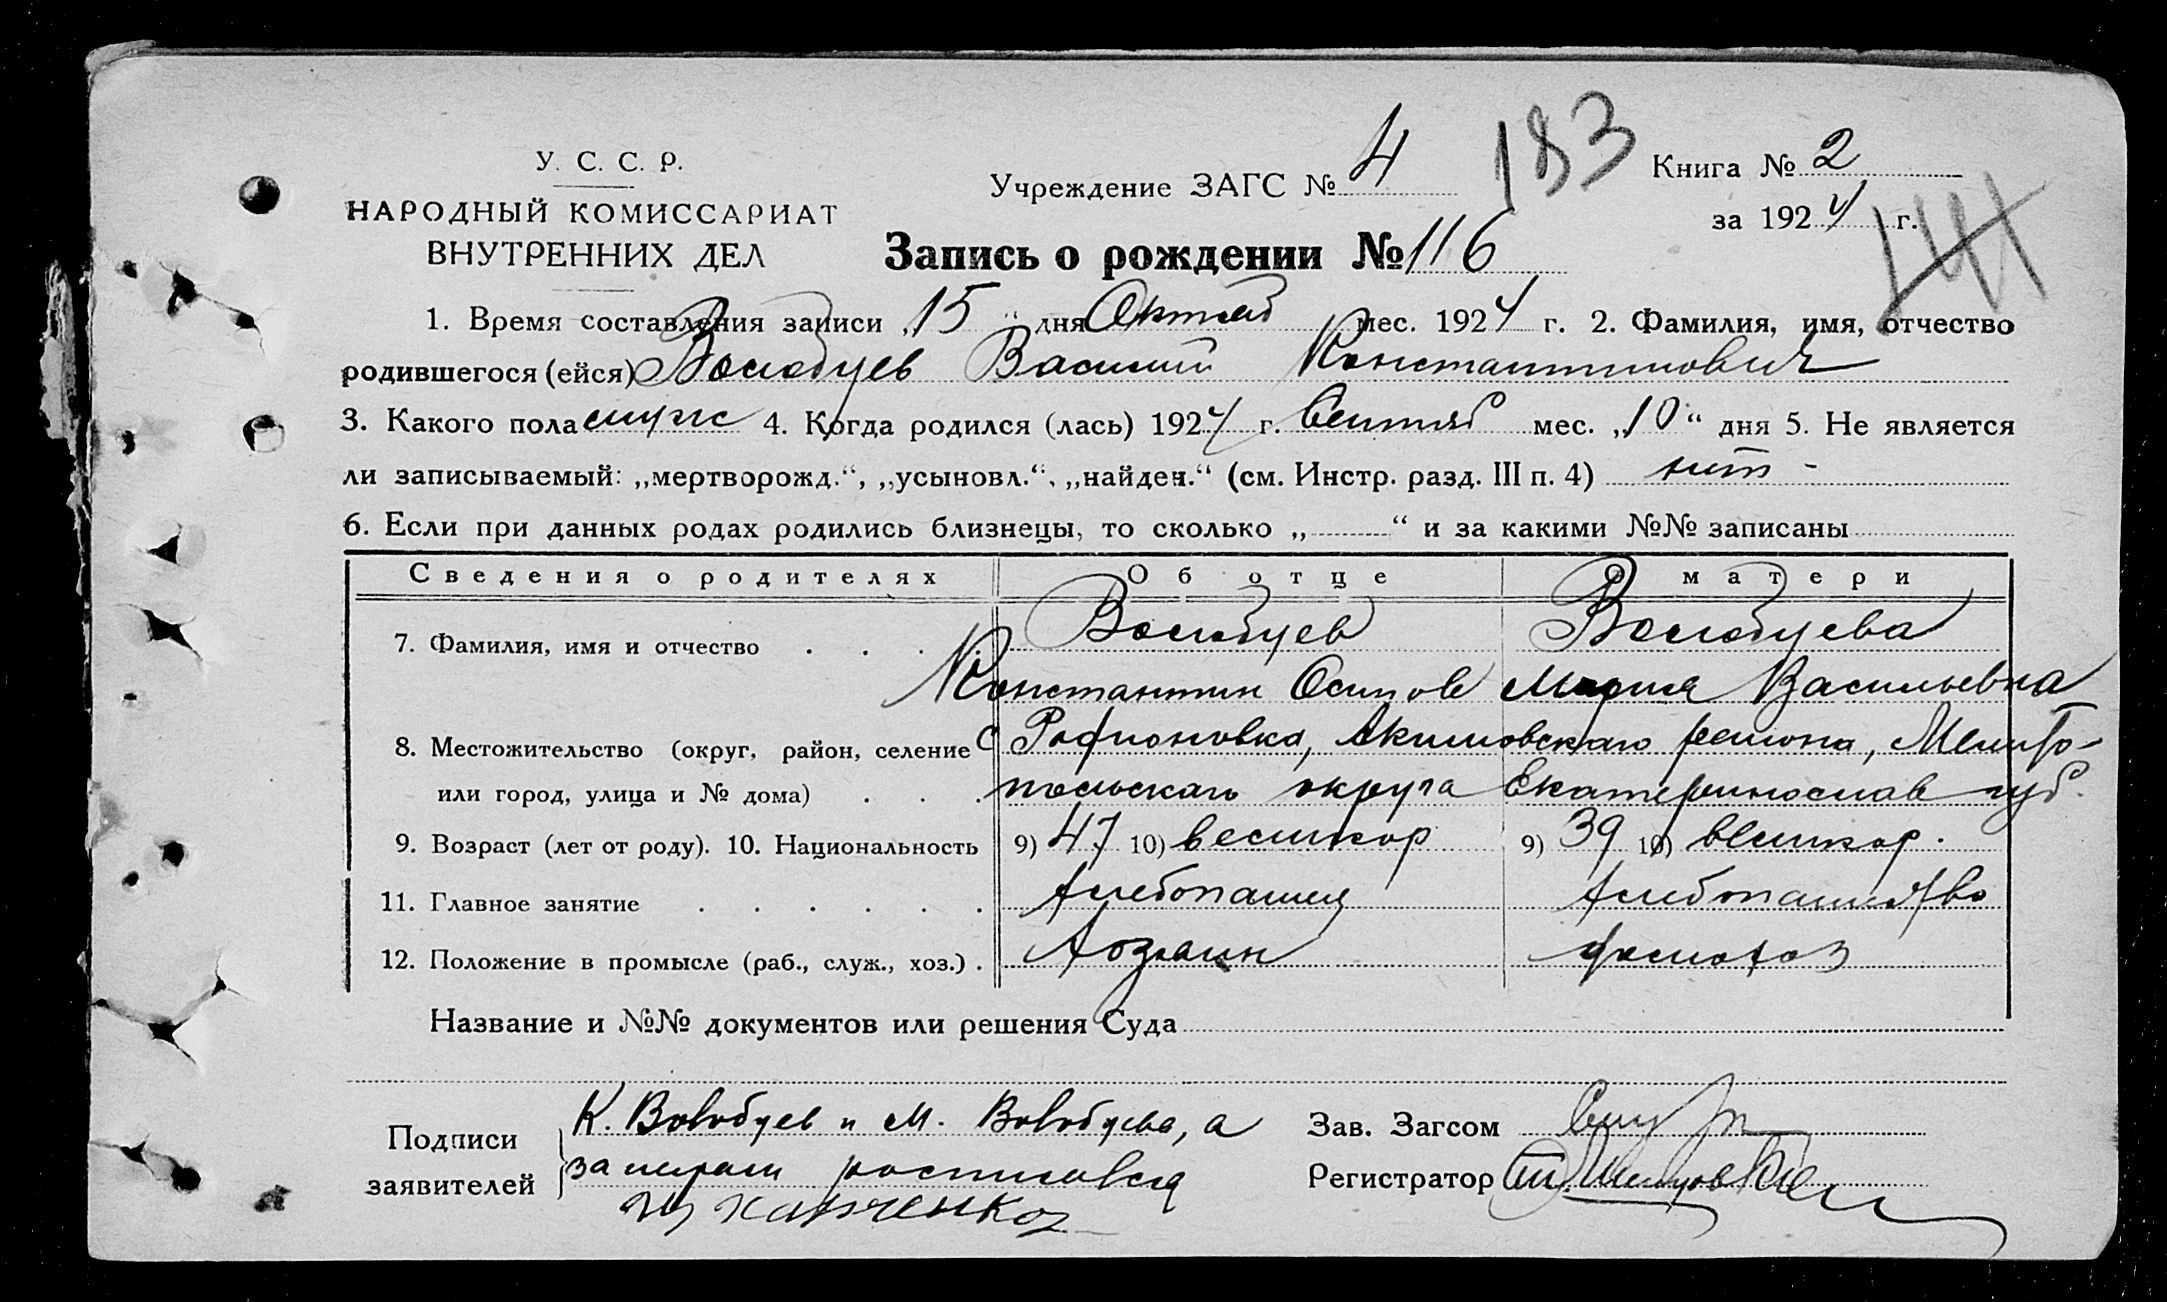 У. С. С. Р.
НАРОДНЫЙ КОМИССАРИАТ
ВНУТРЕННИХ ДЕЛ
Учреждение ЗАГС № 4
183
Книга № 2
за 1924 г.
141
Запись о рождении № 116
1. Время составления записи „15“ дня Октяб мес. 1924 г. 2. Фамилия, имя, отчество
родившегося (ейся) Волобуев Василий Константинович
3. Какого пола муж 4. Когда родился (лась) 1924 г. Сентяб мес. „10“ дня 5. Не является
ли записываемый: „мертворожд.“, „усыновл.“, „найден.“ (см. Инстр. разд. III п. 4) нет -
6. Если при данных родах родились близнецы, то сколько „ “ и за какими №№ записаны
Сведения о родителях Об отце О матери
7. Фамилия, имя и отчество Волобуев Волобуева
Константин Осипов Мария Васильевна
8. Местожительство (округ, район, селение с Родионовка, Акимовскаго района, Мелито-
или город, улица и № дома) польскаго округа Екатеринослав губ.
9. Возраст (лет от роду). 10. Национальность 9) 47 10) великор 9) 39 10) великор.
11. Главное занятие хлебопашец хлебопашество
12. Положение в промысле (раб., служ., хоз.) хозяин домохоз
Название и №№ документов или решения Суда
Подписи заявителей
К. Волобуев и М. Волобуева, а
за неграм росписался
Зав. Загсом
Регистратор